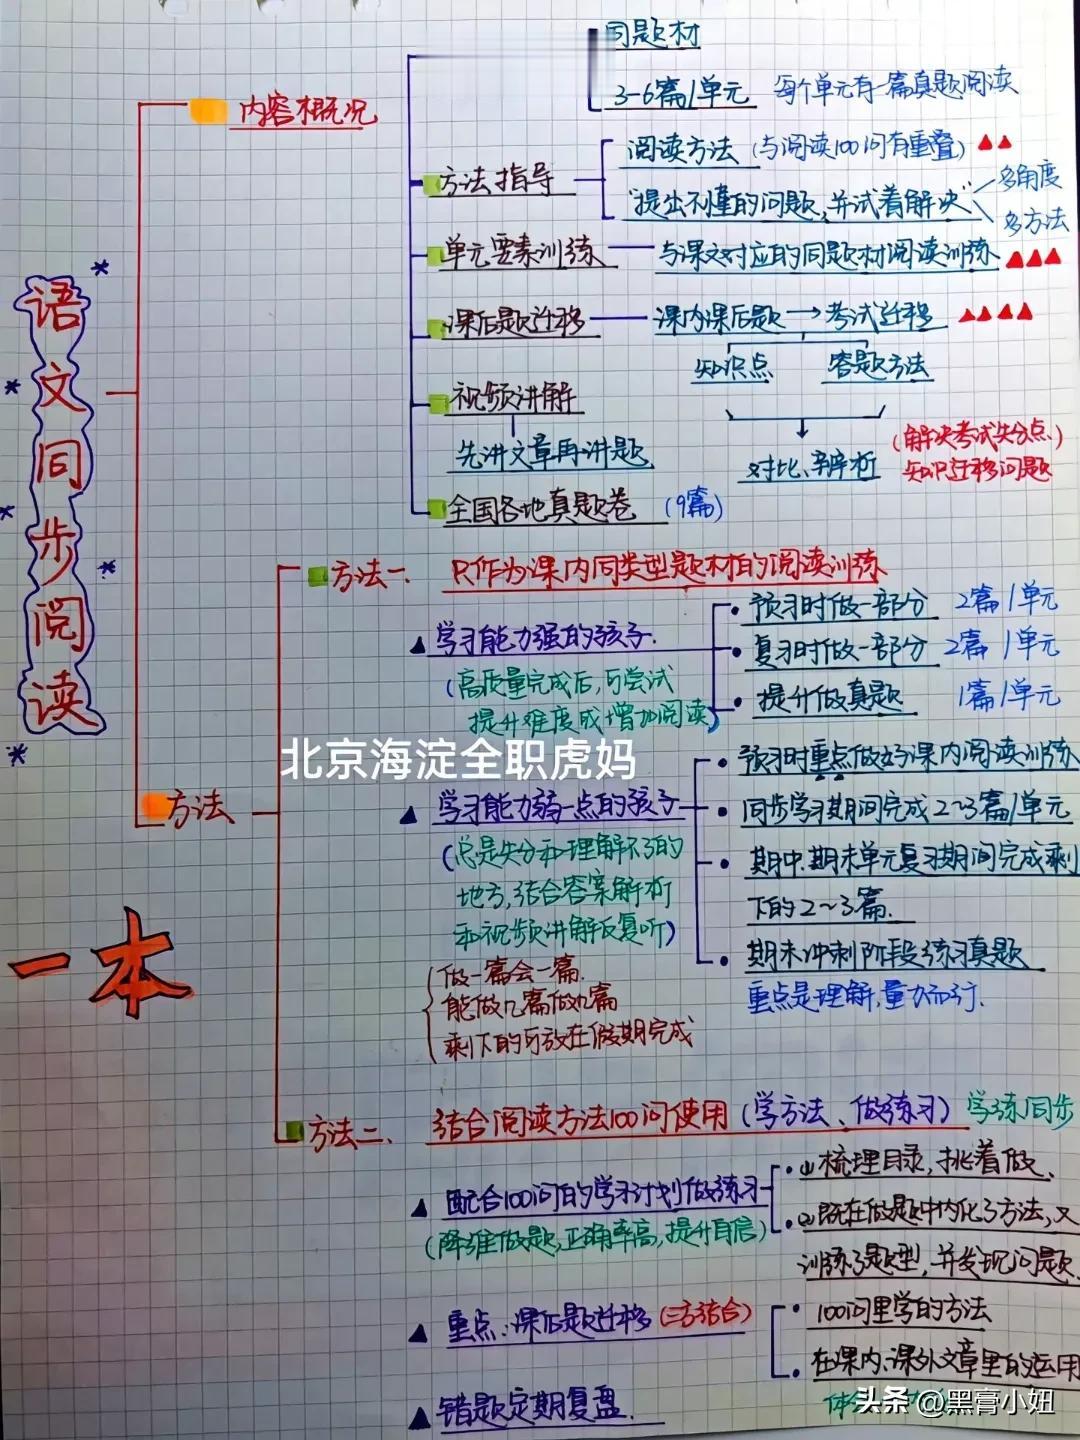 同题材
3-6篇/单元 每个单元有一篇真题阅读
内容概况
阅读方法(与阅读100问有重叠)
方法指导
"提出不懂的问题,并试着解决"
多角度
多方法
单元要素训练
与课文对应的同题材阅读训练
课后题迁移
课内课后题→考试迁移
知识点
答题方法
视频讲解
先讲文章再讲题
对比、辨析
(解决考试失分点、
知识迁移问题)
全国各地真题卷 (9篇)
语文同步阅读
方法一、 只作为课内同类型题材的阅读训练
学习能力强的孩子.
(高质量完成后,可尝试
提升难度或增加阅读)
预习时做一部分 2篇/单元
复习时做一部分 2篇/单元
提升做真题 1篇/单元
北京海淀全职虎妈
方法
学习能力弱一点的孩子
(总是失分和理解不了的
地方,结合答案解析
和视频讲解反复听)
做一篇会一篇.
能做几篇做几篇
剩下的可放在假期完成
预习时重点做好课内阅读训练
同步学习期间完成2~3篇/单元
期中.期末单元复习期间完成剩
下的2~3篇.
期末冲刺阶段练习真题
重点是理解,量力而行.
一本
方法二、 结合阅读方法100问使用(学方法、做练习) 学练同步
配合100问的学习计划做练习
(降难做题,正确率高,提升自信)
(1)梳理目录,挑着做、
(2)既在做题中内化了方法,又
训练了题型,并发现问题.
重点:课后题迁移(三方结合)
100问里学的方法
在课内、课外文章里的运用
错题定期复盘.
头条@黑膏小妞